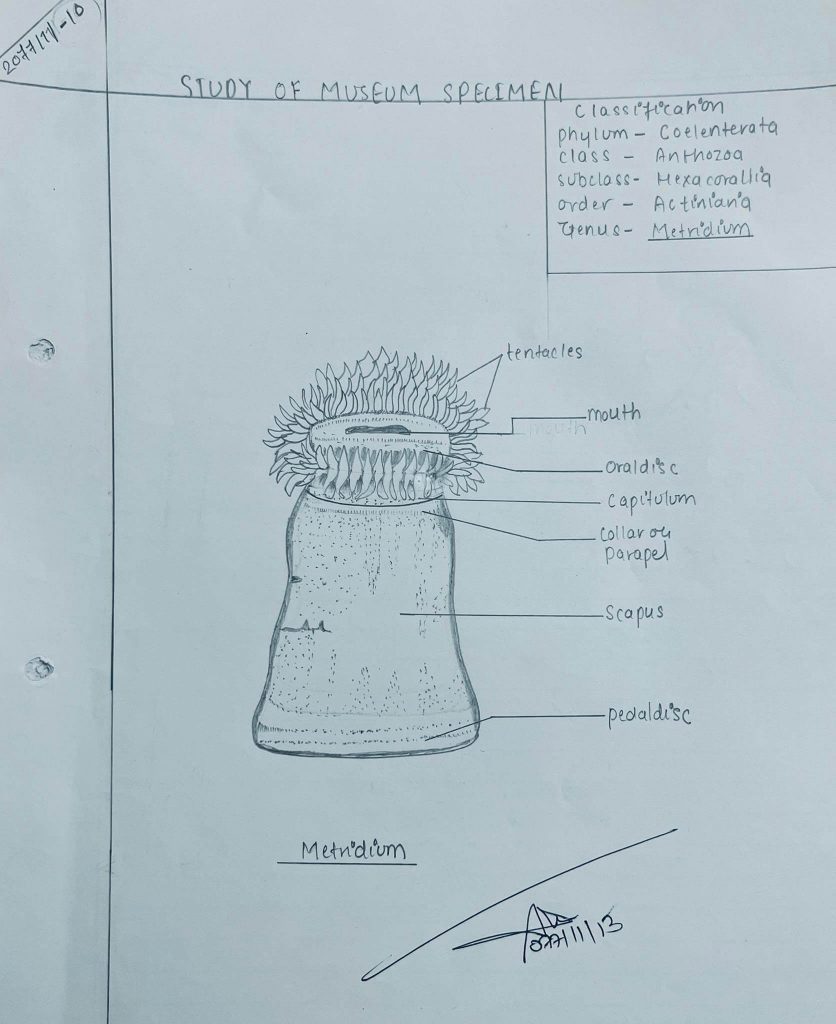 2077/11/-10
STUDY OF MUSEUM SPECIMEN
Classification
phylum - Coelenterata
class - Anthozoa
subclass- Hexacorallia
order - Actiniaria
Genus- Metridium
tentacles
mouth
mouth
oraldisc
capitulum
collar or
parapel
scapus
pedaldisc
Metridium
077/11/13